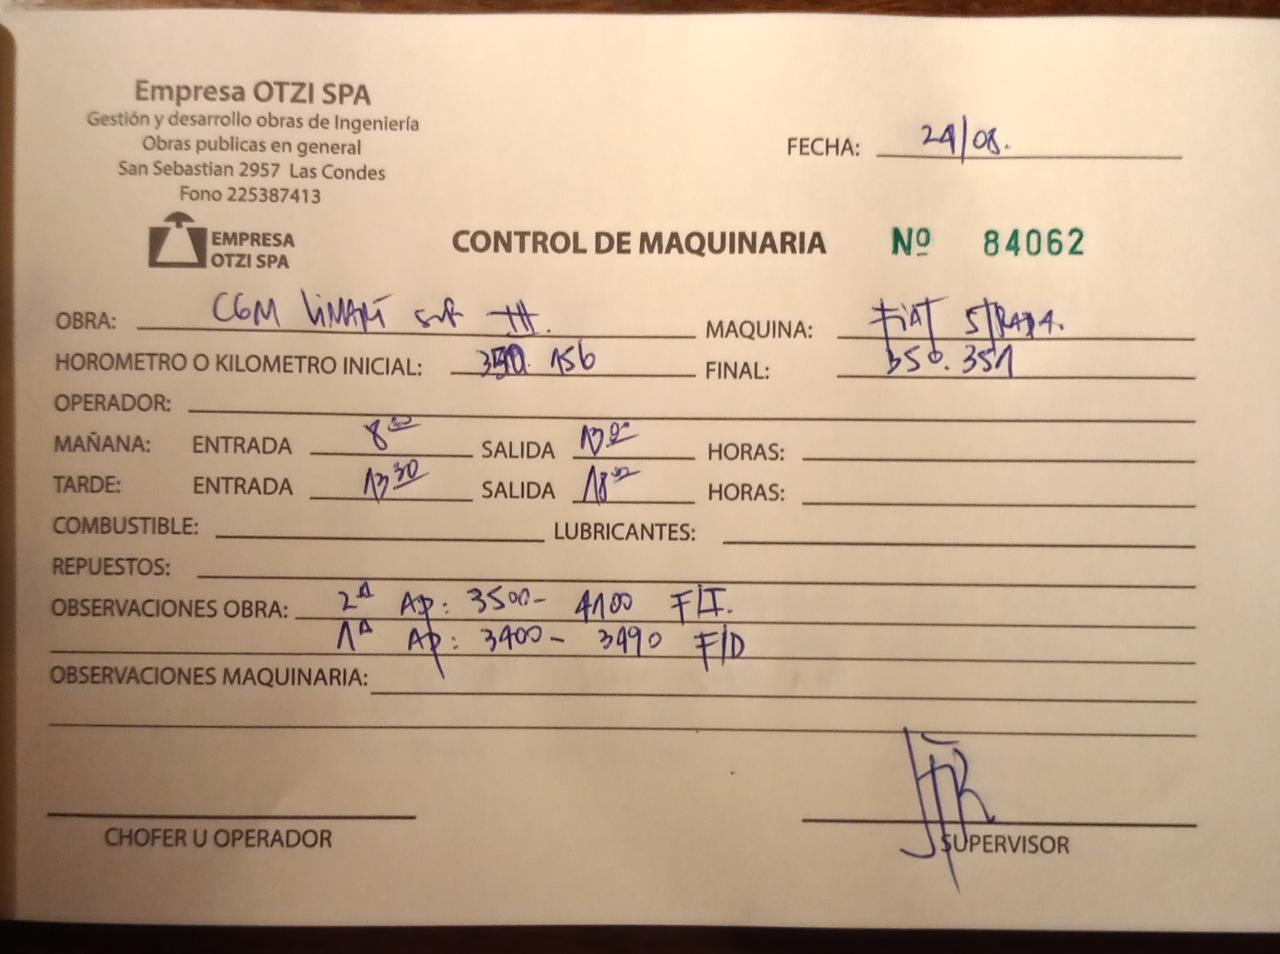 Empresa OTZI SPA
Gestión y desarrollo obras de Ingeniería
Obras publicas en general
San Sebastian 2957 Las Condes
Fono 225387413
EMPRESA
OTZI SPA
FECHA: 24/08.
CONTROL DE MAQUINARIA Nº 84062
OBRA: CGM LiMARÍ III. MAQUINA: FiAT STRADA.
HOROMETRO O KILOMETRO INICIAL: 350.156 FINAL: 350.351
OPERADOR:
MAÑANA: ENTRADA 8 00 SALIDA 13 00 HORAS:
TARDE: ENTRADA 13 30 SALIDA 18 00 HORAS:
COMBUSTIBLE: LUBRICANTES:
REPUESTOS:
OBSERVACIONES OBRA: 2ª Ap: 3500 - 4100 F/I.
1ª Ap: 3400 - 3490 F/D
OBSERVACIONES MAQUINARIA:
CHOFER U OPERADOR SUPERVISOR